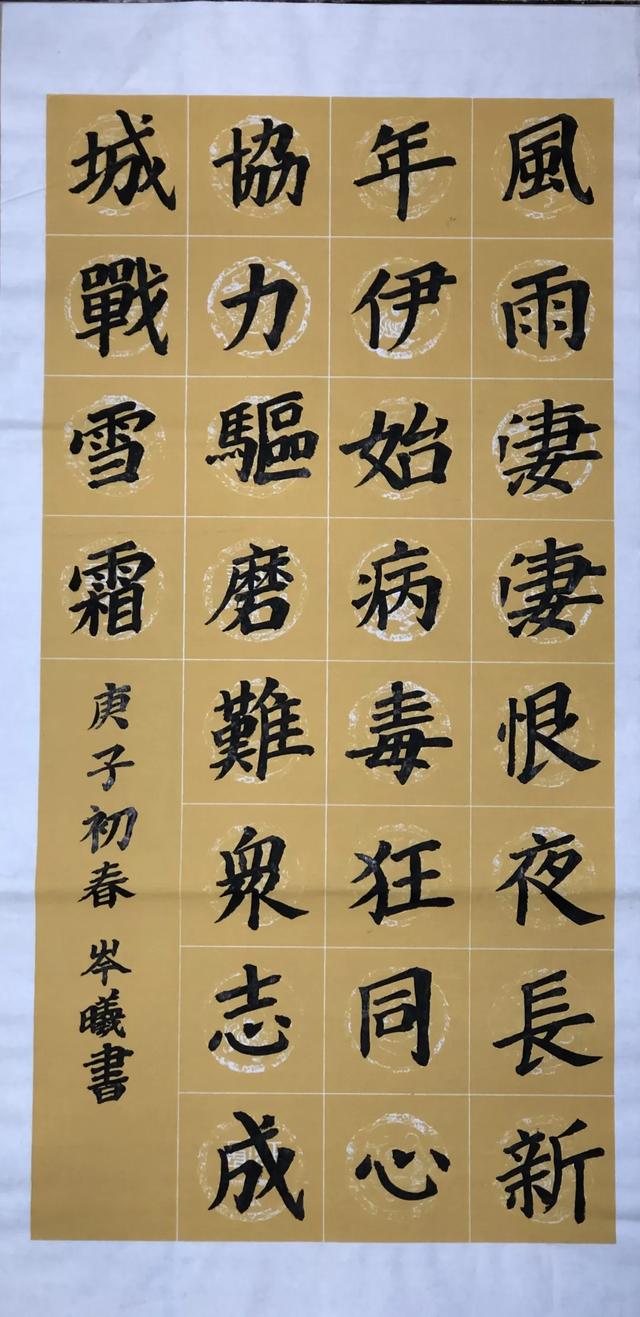 風雨淒淒恨夜長新
年伊始病毒狂同心
協力驅磨難衆志成
城戰雪霜
庚子初春 岑曦書